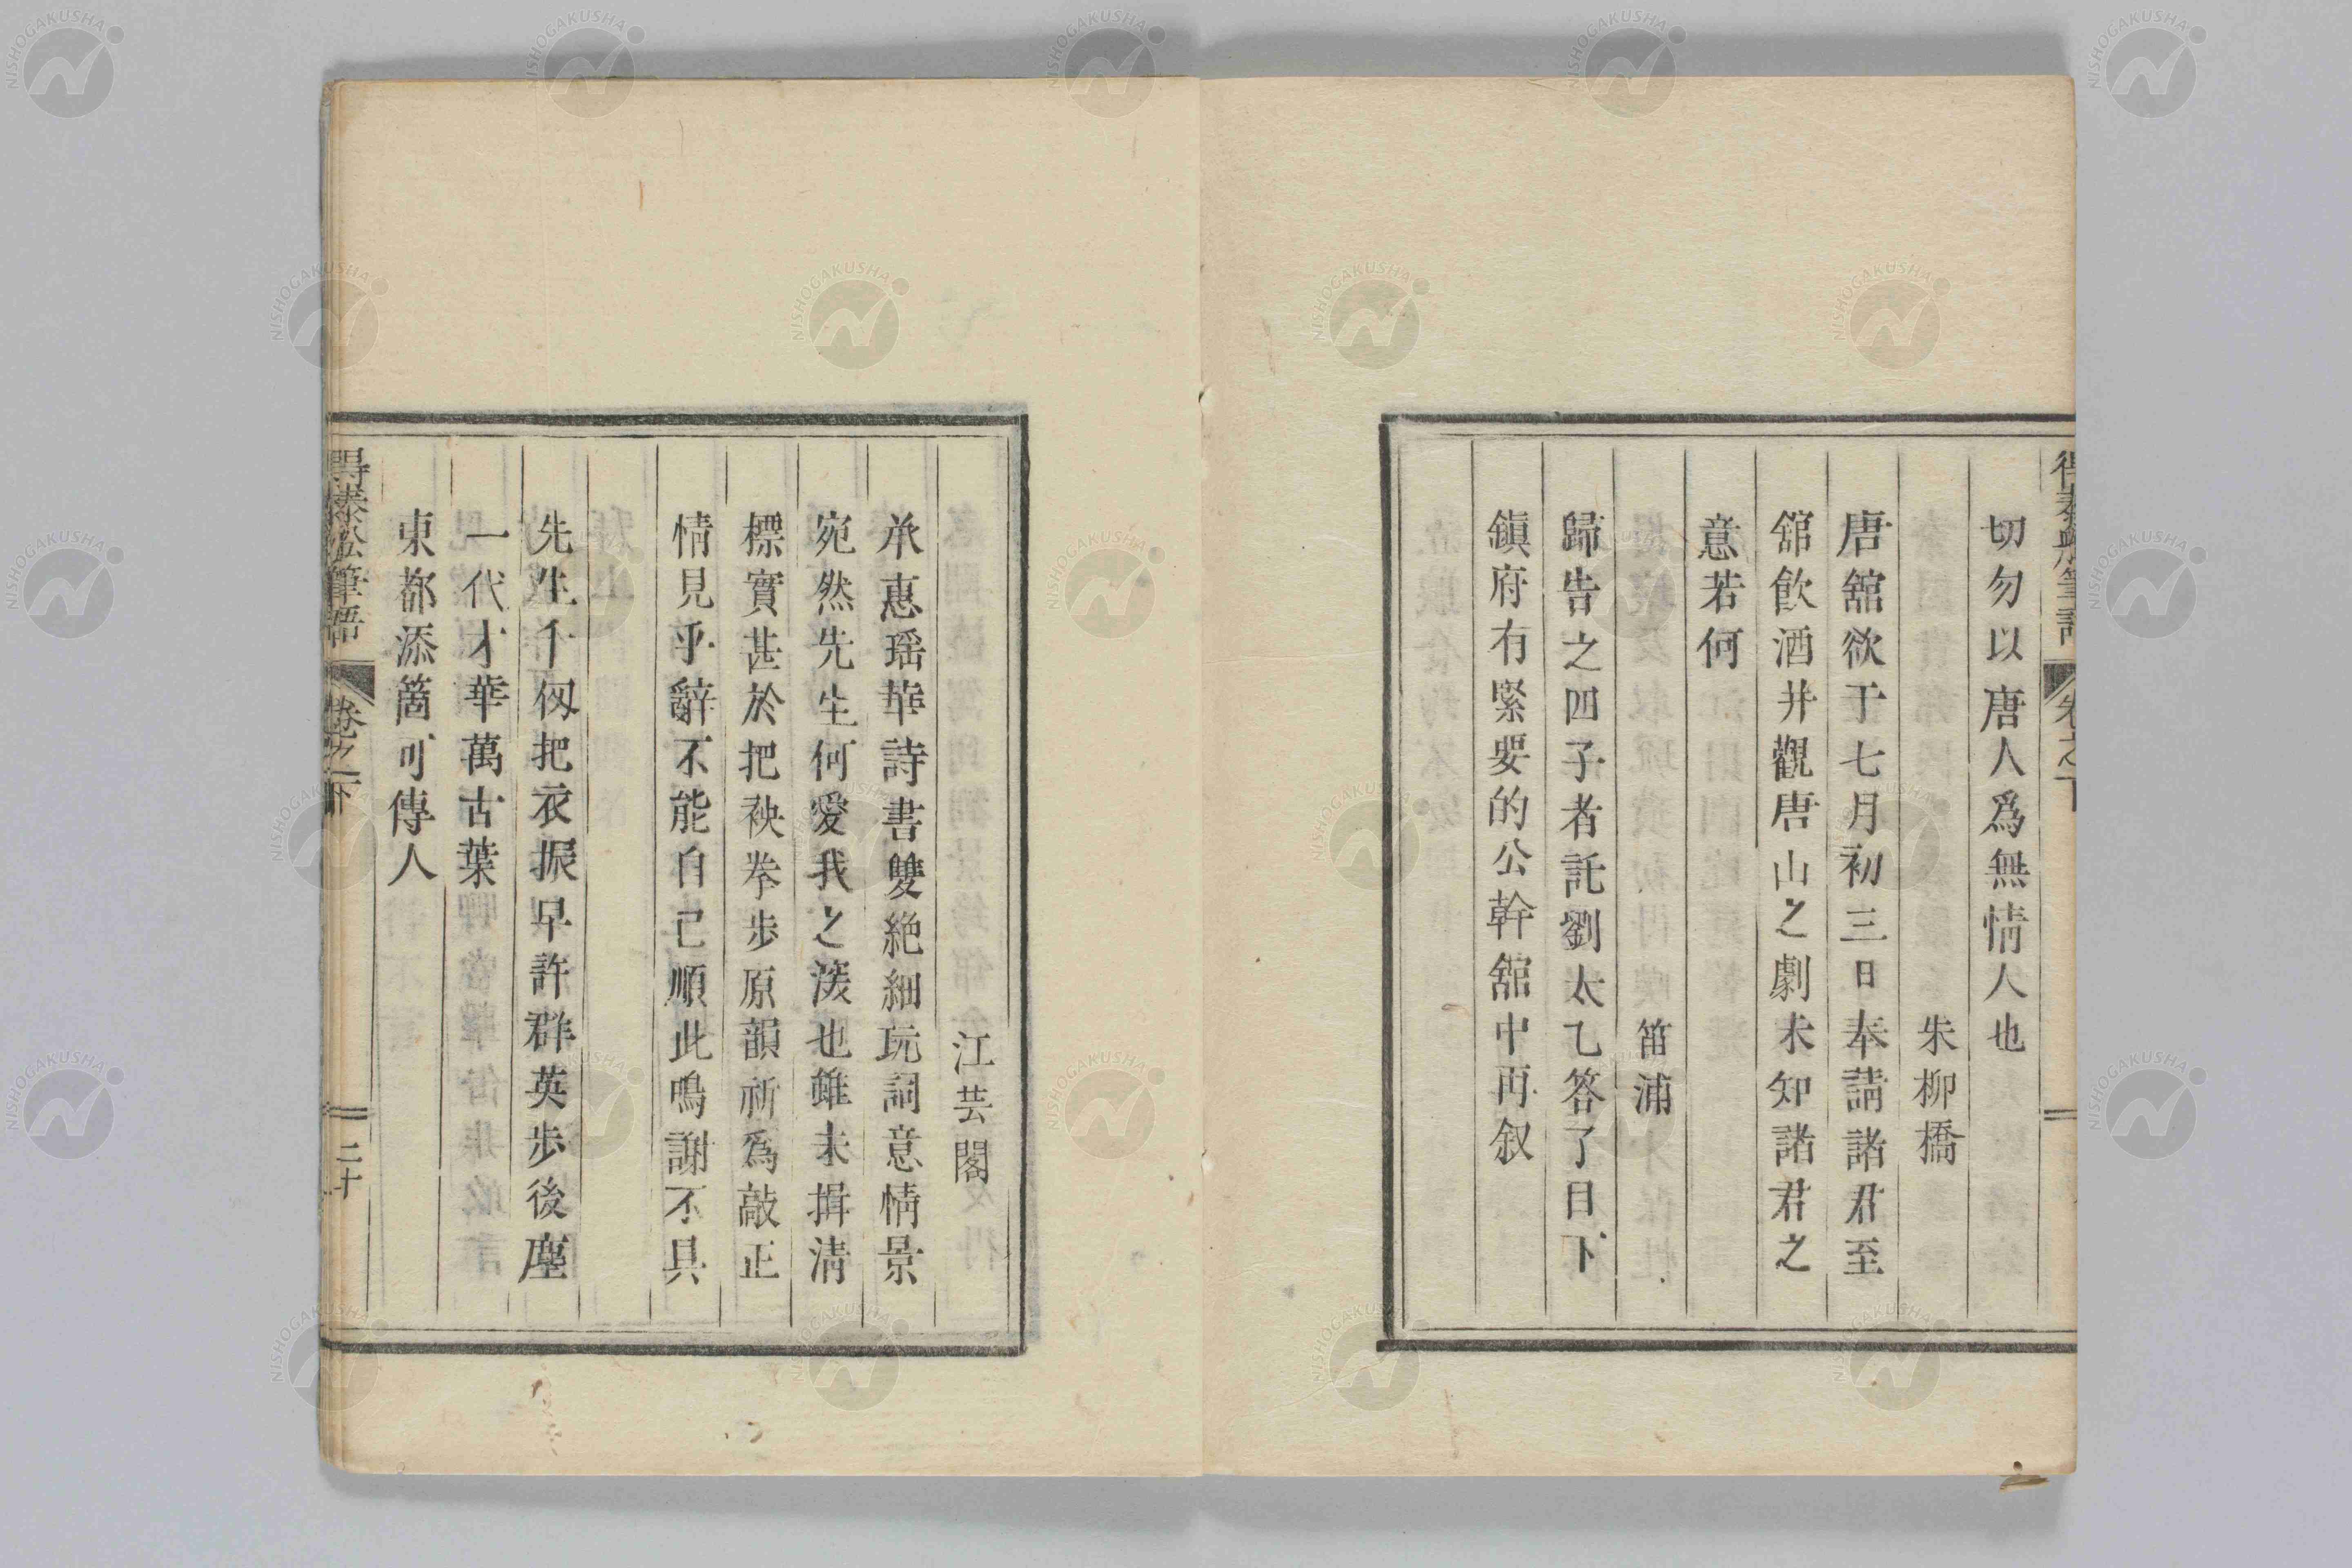 切勿以唐人爲無情人也
朱柳橋
唐舘欲于七月初三日奉請諸君至
舘飲酒并觀唐山之劇未知諸君之
意若何
笛浦
歸告之四子者託劉太乙答了目下
鎮府有緊要的公幹舘中再叙
江芸閣
承惠瑶華詩書雙絶細玩詞意情景
宛然先生何愛我之深也雖未揖清
標實甚於把袂拳步原韻祈爲敲正
情見乎辭不能自已順此鳴謝不具
先生千仭把衣振早許群英步後塵
一代才華萬古葉
東都添箇可傳人
得泰船筆語 卷之下 二十